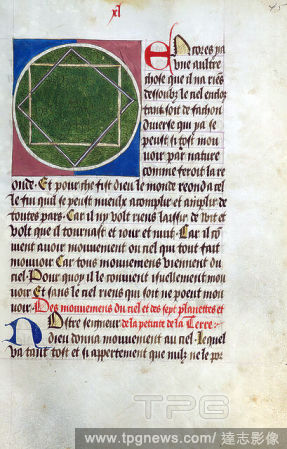 xl
45
Encores y a
une aultre
chose que il na riens
dessoubz le ciel en clor
tant soit de fachon
diverse qui ya se
peust si tost mou
voir par nature
comme feroit la re
onde. Et pour che fist dieu le monde reond a cel
le fin quil se peust mieulx acomplir et amplir de
toutes pars. Car il ny volt riens laissir de wit et
volt que il tournast et iour et nuit. Car il co
vient avoir mouvement ou ciel qui tout fait
mouvoir Car tous mouvemens viennent du
ciel. Pour quoy il le convient isnellement mou
voir Et sans le ciel riens qui soit ne poent mou
voir. Des mouvemens du ciel et des sept planettes et
Nostre seigneur de la petitate de la Terre.
Dieu donna mouvement au ciel. lequel
va tant tost et si appertement que nulz ne le por
TPG
www.tpgnews.com/ 達志影像